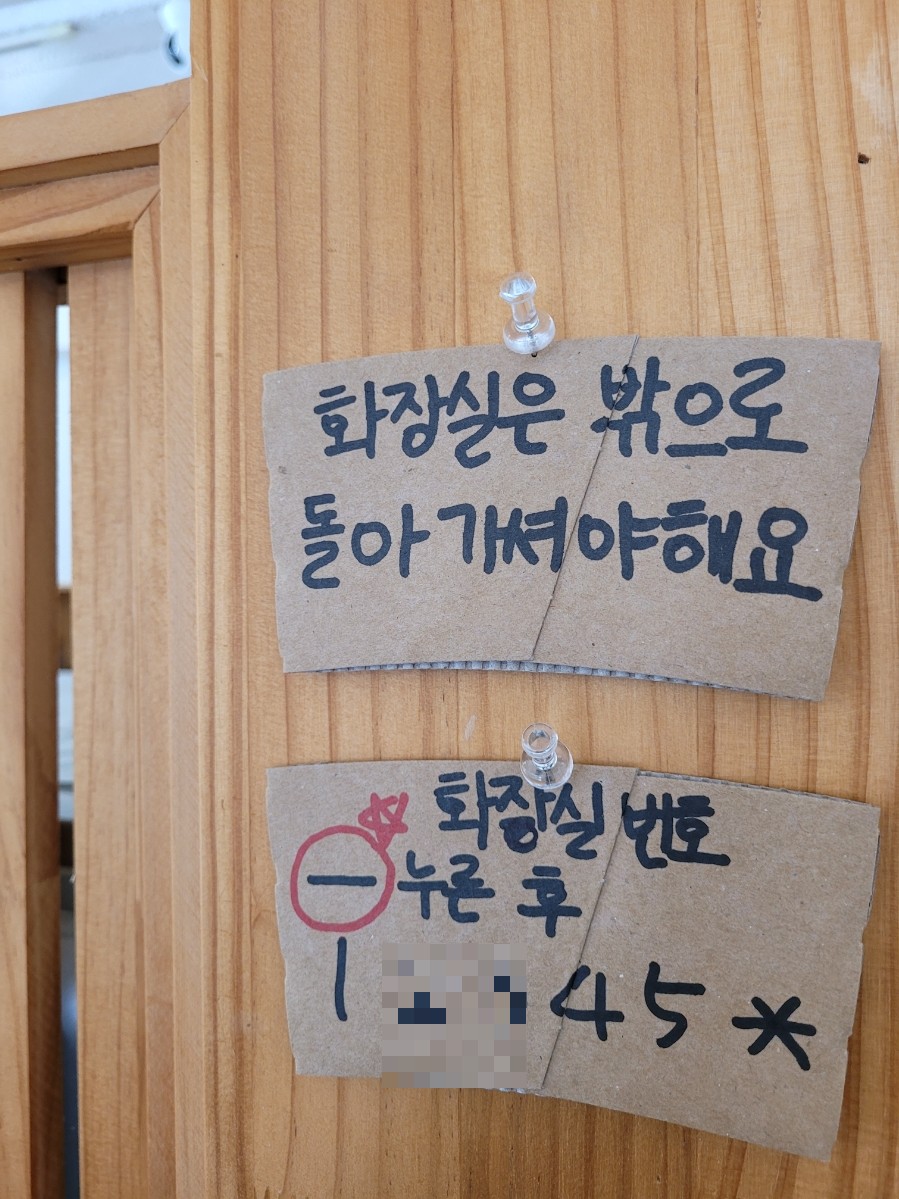 화장실은 밖으로
돌아 가셔야해요
화장실 번호
— 누른 후
1 45 *